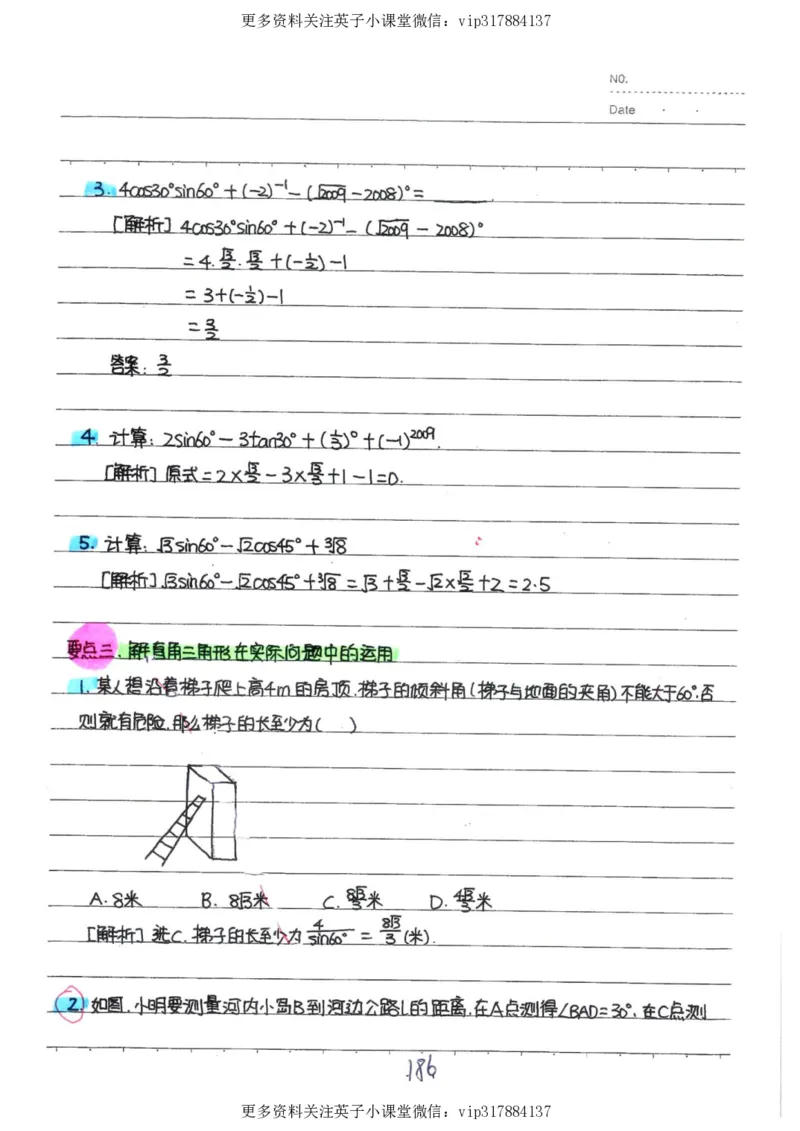 更多资料关注英子小课堂微信：vip317884137
NO.
Date
3. 4cos30°sin60°+(-2)⁻¹-(√2009-2008)°=______.
[解析] 4cos30°sin60°+(-2)⁻¹-(√2009-2008)°
=4·√3/2·√3/2+(-1/2)-1
=3+(-1/2)-1
=3/2
答案：3/2
4. 计算：2sin60°-3tan30°+(1/3)°+(-1)²⁰⁰⁹.
[解析] 原式=2×√3/2-3×√3/3+1-1=0.
5. 计算：√3sin60°-√2cos45°+³√8
[解析] √3sin60°-√2cos45°+³√8=√3+√3/2-√2×√2/2+2=2.5
要点三、解直角三角形在实际问题中的运用
1. 某人想沿着梯子爬上高4m的房顶，梯子的倾斜角(梯子与地面的夹角)不能大于60°，否
则就有危险，那么梯子的长至少为( )
A. 8米 B. 8√3米 C. 8√3/3米 D. 4√3/3米
[解析] 选C. 梯子的长至少为4/sin60°=8√3/3(米).
2. 如图，小明要测量河内小岛B到河边公路l的距离，在A点测得∠BAD=30°，在C点测
186
更多资料关注英子小课堂微信：vip317884137